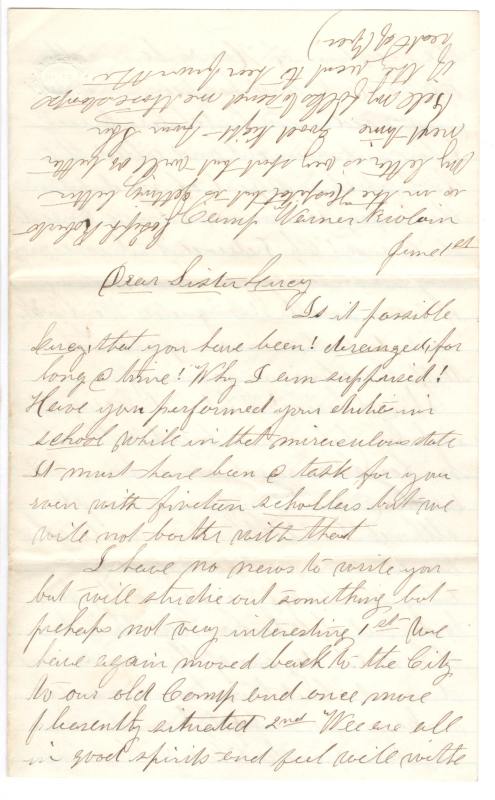 Camp Warner
June 1st
Dear Sister Lucy
Is it possible
Lucy, that you have been! deranged, for
long a time! Why I am supprised!
Have you performed your duties in
school while in that miraculous state
It must have been a task for you
even with fiveteen schollers but we
will not bother with that
I have no news to write you
but will studie out something but
prehaps not very interesting, 1st We
have again moved back to the City
to our old Camp and once more
pleasently situated 2nd Wee are all
in good spirits and feel well with
Joseph Roberts
is in the Hospital but is getting better
My letter is very short but will do better
next time Good Night from Ser
Tell my folks to send me those stamps